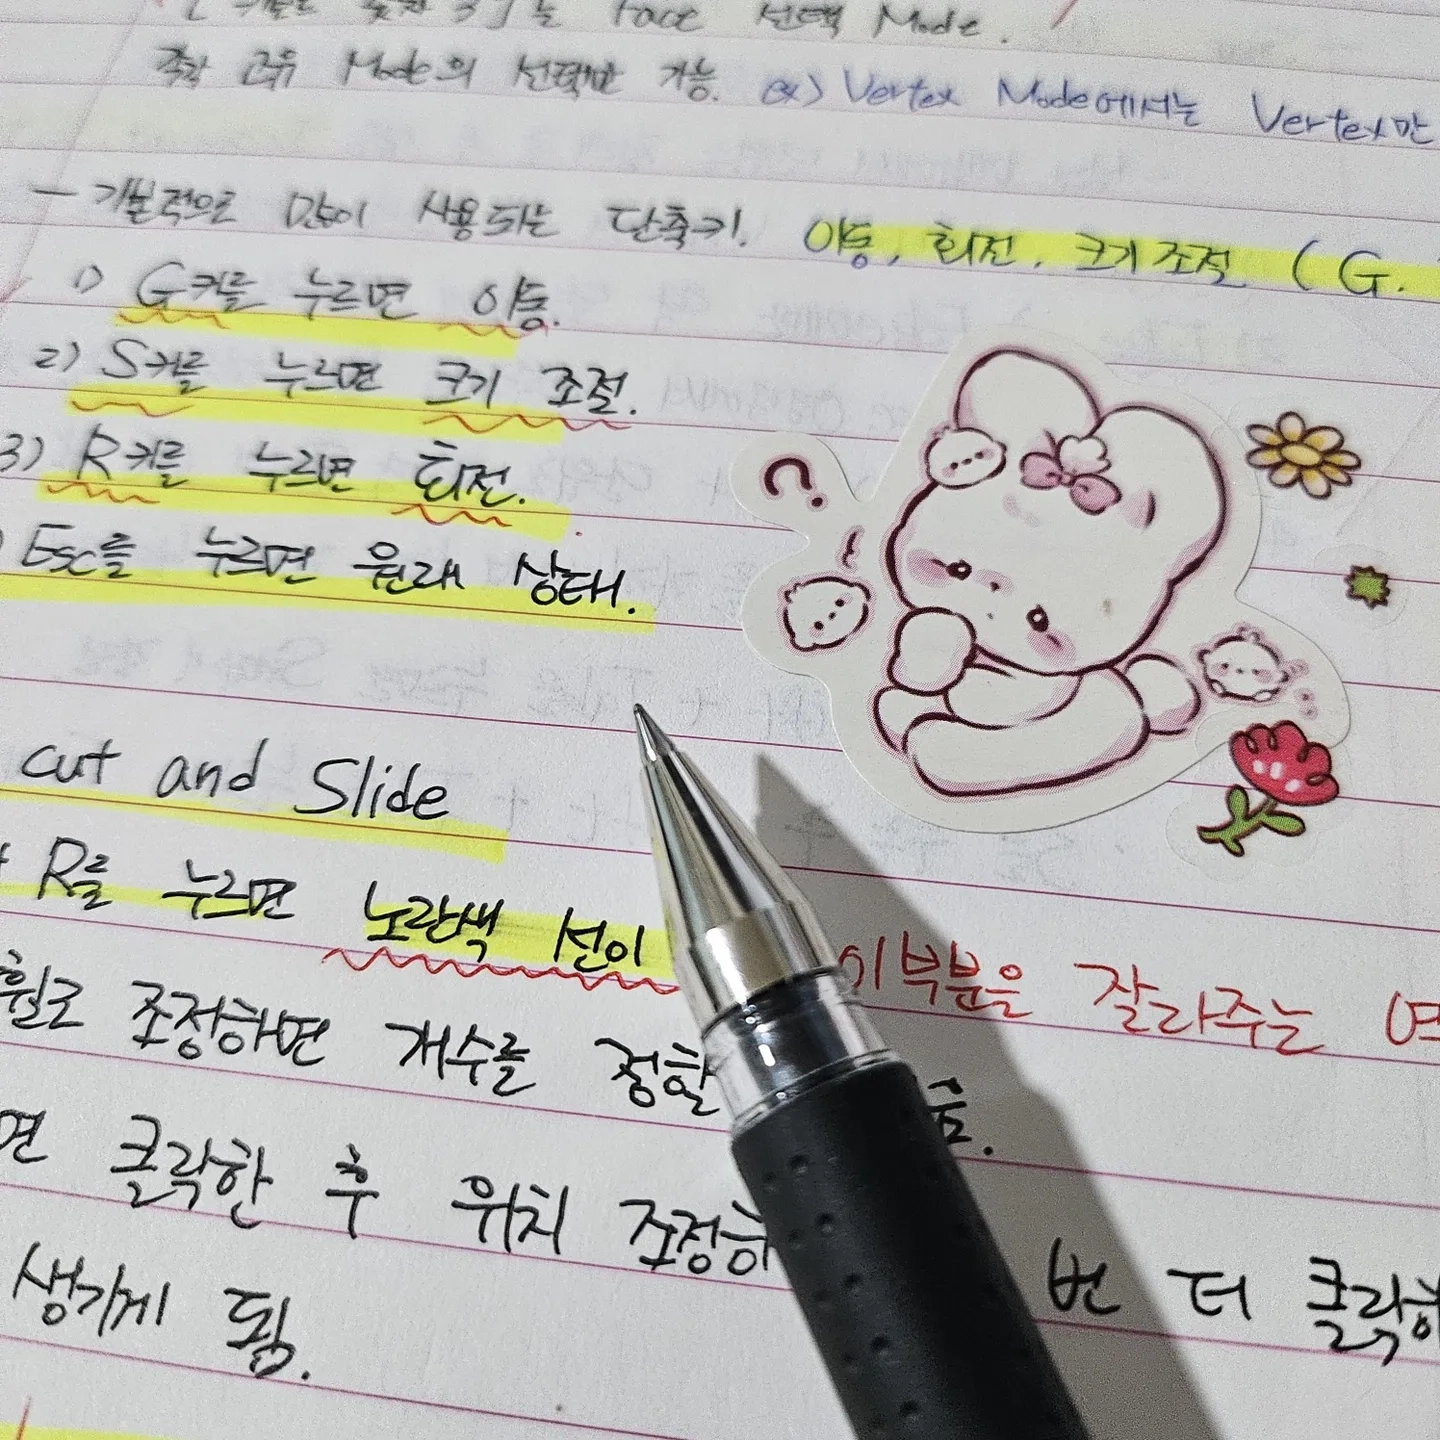 3 는 Face 선택 Mode.
즉 각 고유 Mode의 선택만 가능. ex) Vertex Mode에서는 Vertex만
- 기본적으로 많이 사용되는 단축키. 이동, 회전, 크기 조절 ( G.
1) G키를 누르면 이동.
2) S키를 누르면 크기 조절.
3) R키를 누르면 회전.
) Esc를 누르면 원래 상태.
cut and Slide
R를 누르면 노란색 선이 이 부분을 잘라주는
휠로 조정하면 개수를 정할
면 클릭한 후 위치 조정하 번 더 클릭하
생기게 됨.